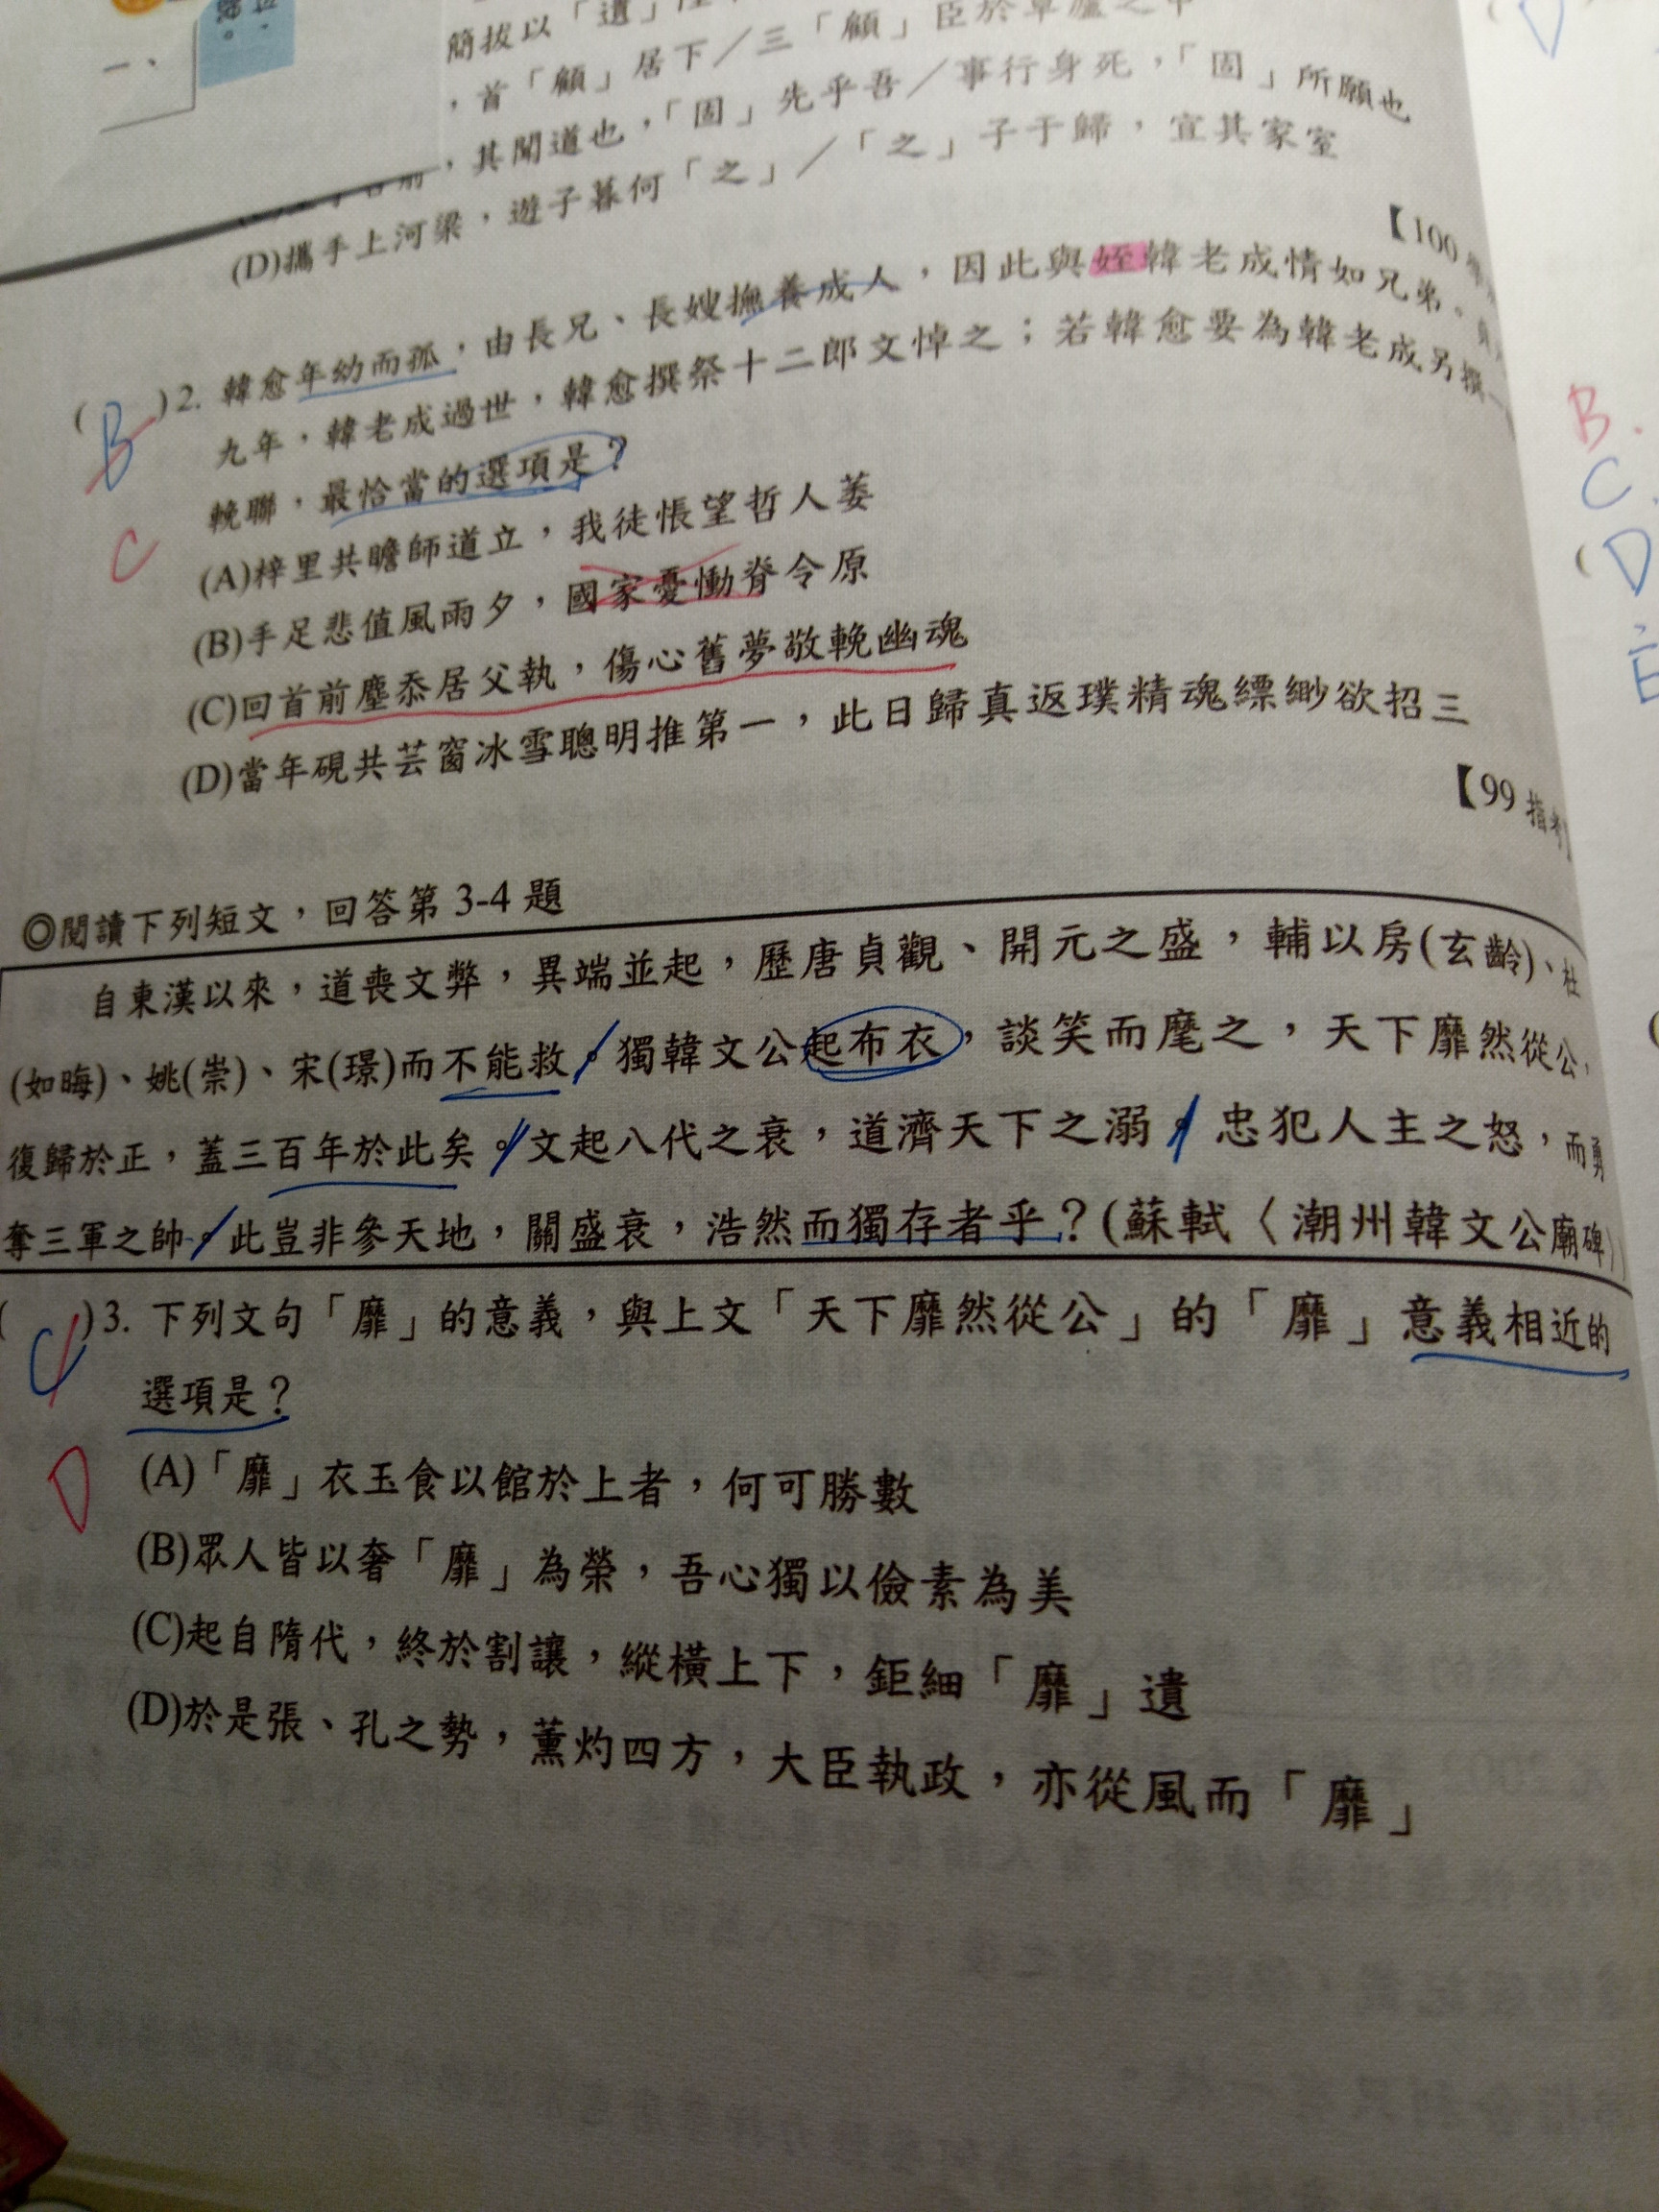 一、
簡拔以「遺」
，首「顧」居下／三「顧」臣於草廬之中
，其聞道也，「固」先乎吾／事行身死，「固」所願也
(D)攜手上河梁，遊子暮何「之」／「之」子于歸，宜其家室
【100
( B )2. 韓愈年幼而孤，由長兄、長嫂撫養成人，因此與姪韓老成情如兄弟。貞
九年，韓老成過世，韓愈撰祭十二郎文悼之；若韓愈要為韓老成另撰一
輓聯，最恰當的選項是？
C
(A)梓里共瞻師道立，我徒悵望哲人萎
(B)手足悲值風雨夕，國家憂慟脊令原
(C)回首前塵忝居父執，傷心舊夢敬輓幽魂
(D)當年硯共芸窗冰雪聰明推第一，此日歸真返璞精魂縹緲欲招三
【99 指考】
◎閱讀下列短文，回答第 3-4 題
自東漢以來，道喪文弊，異端並起，歷唐貞觀、開元之盛，輔以房(玄齡)、杜
(如晦)、姚(崇)、宋(璟)而不能救。獨韓文公起布衣，談笑而麾之，天下靡然從公，
復歸於正，蓋三百年於此矣。文起八代之衰，道濟天下之溺。忠犯人主之怒，而勇
奪三軍之帥。此豈非參天地，關盛衰，浩然而獨存者乎？(蘇軾〈潮州韓文公廟碑〉)
( C )3. 下列文句「靡」的意義，與上文「天下靡然從公」的「靡」意義相近的
選項是？
D
(A)「靡」衣玉食以館於上者，何可勝數
(B)眾人皆以奢「靡」為榮，吾心獨以儉素為美
(C)起自隋代，終於割讓，縱橫上下，鉅細「靡」遺
(D)於是張、孔之勢，薰灼四方，大臣執政，亦從風而「靡」
B.
C.
D